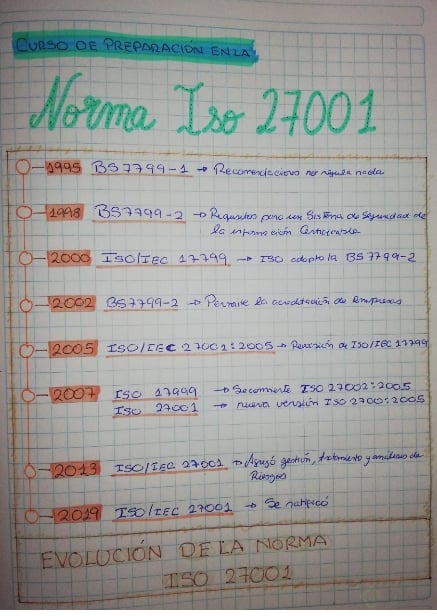 CURSO DE PREPARACIÓN EN LA
Norma Iso 27001
1995 BS7799-1 → Recomendaciones no regula nada
1998 BS7799-2 → Requisitos para un Sistema de Seguridad de
la información Certificable
2000 ISO/IEC 17799 → ISO adopto la BS7799-2
2002 BS7799-2 → Permite la acreditación de Empresas
2005 ISO/IEC 27001:2005 → Revisión de ISO/IEC 17799
2007 ISO 17999 → Se convierte ISO 27002:2005
ISO 27001 → nueva versión ISO 2700:2005
2013 ISO/IEC 27001 → Agregó gestión, tratamiento y análisis de
Riesgos
2019 ISO/IEC 27001 → Se ratificó
EVOLUCIÓN DE LA NORMA
ISO 27001